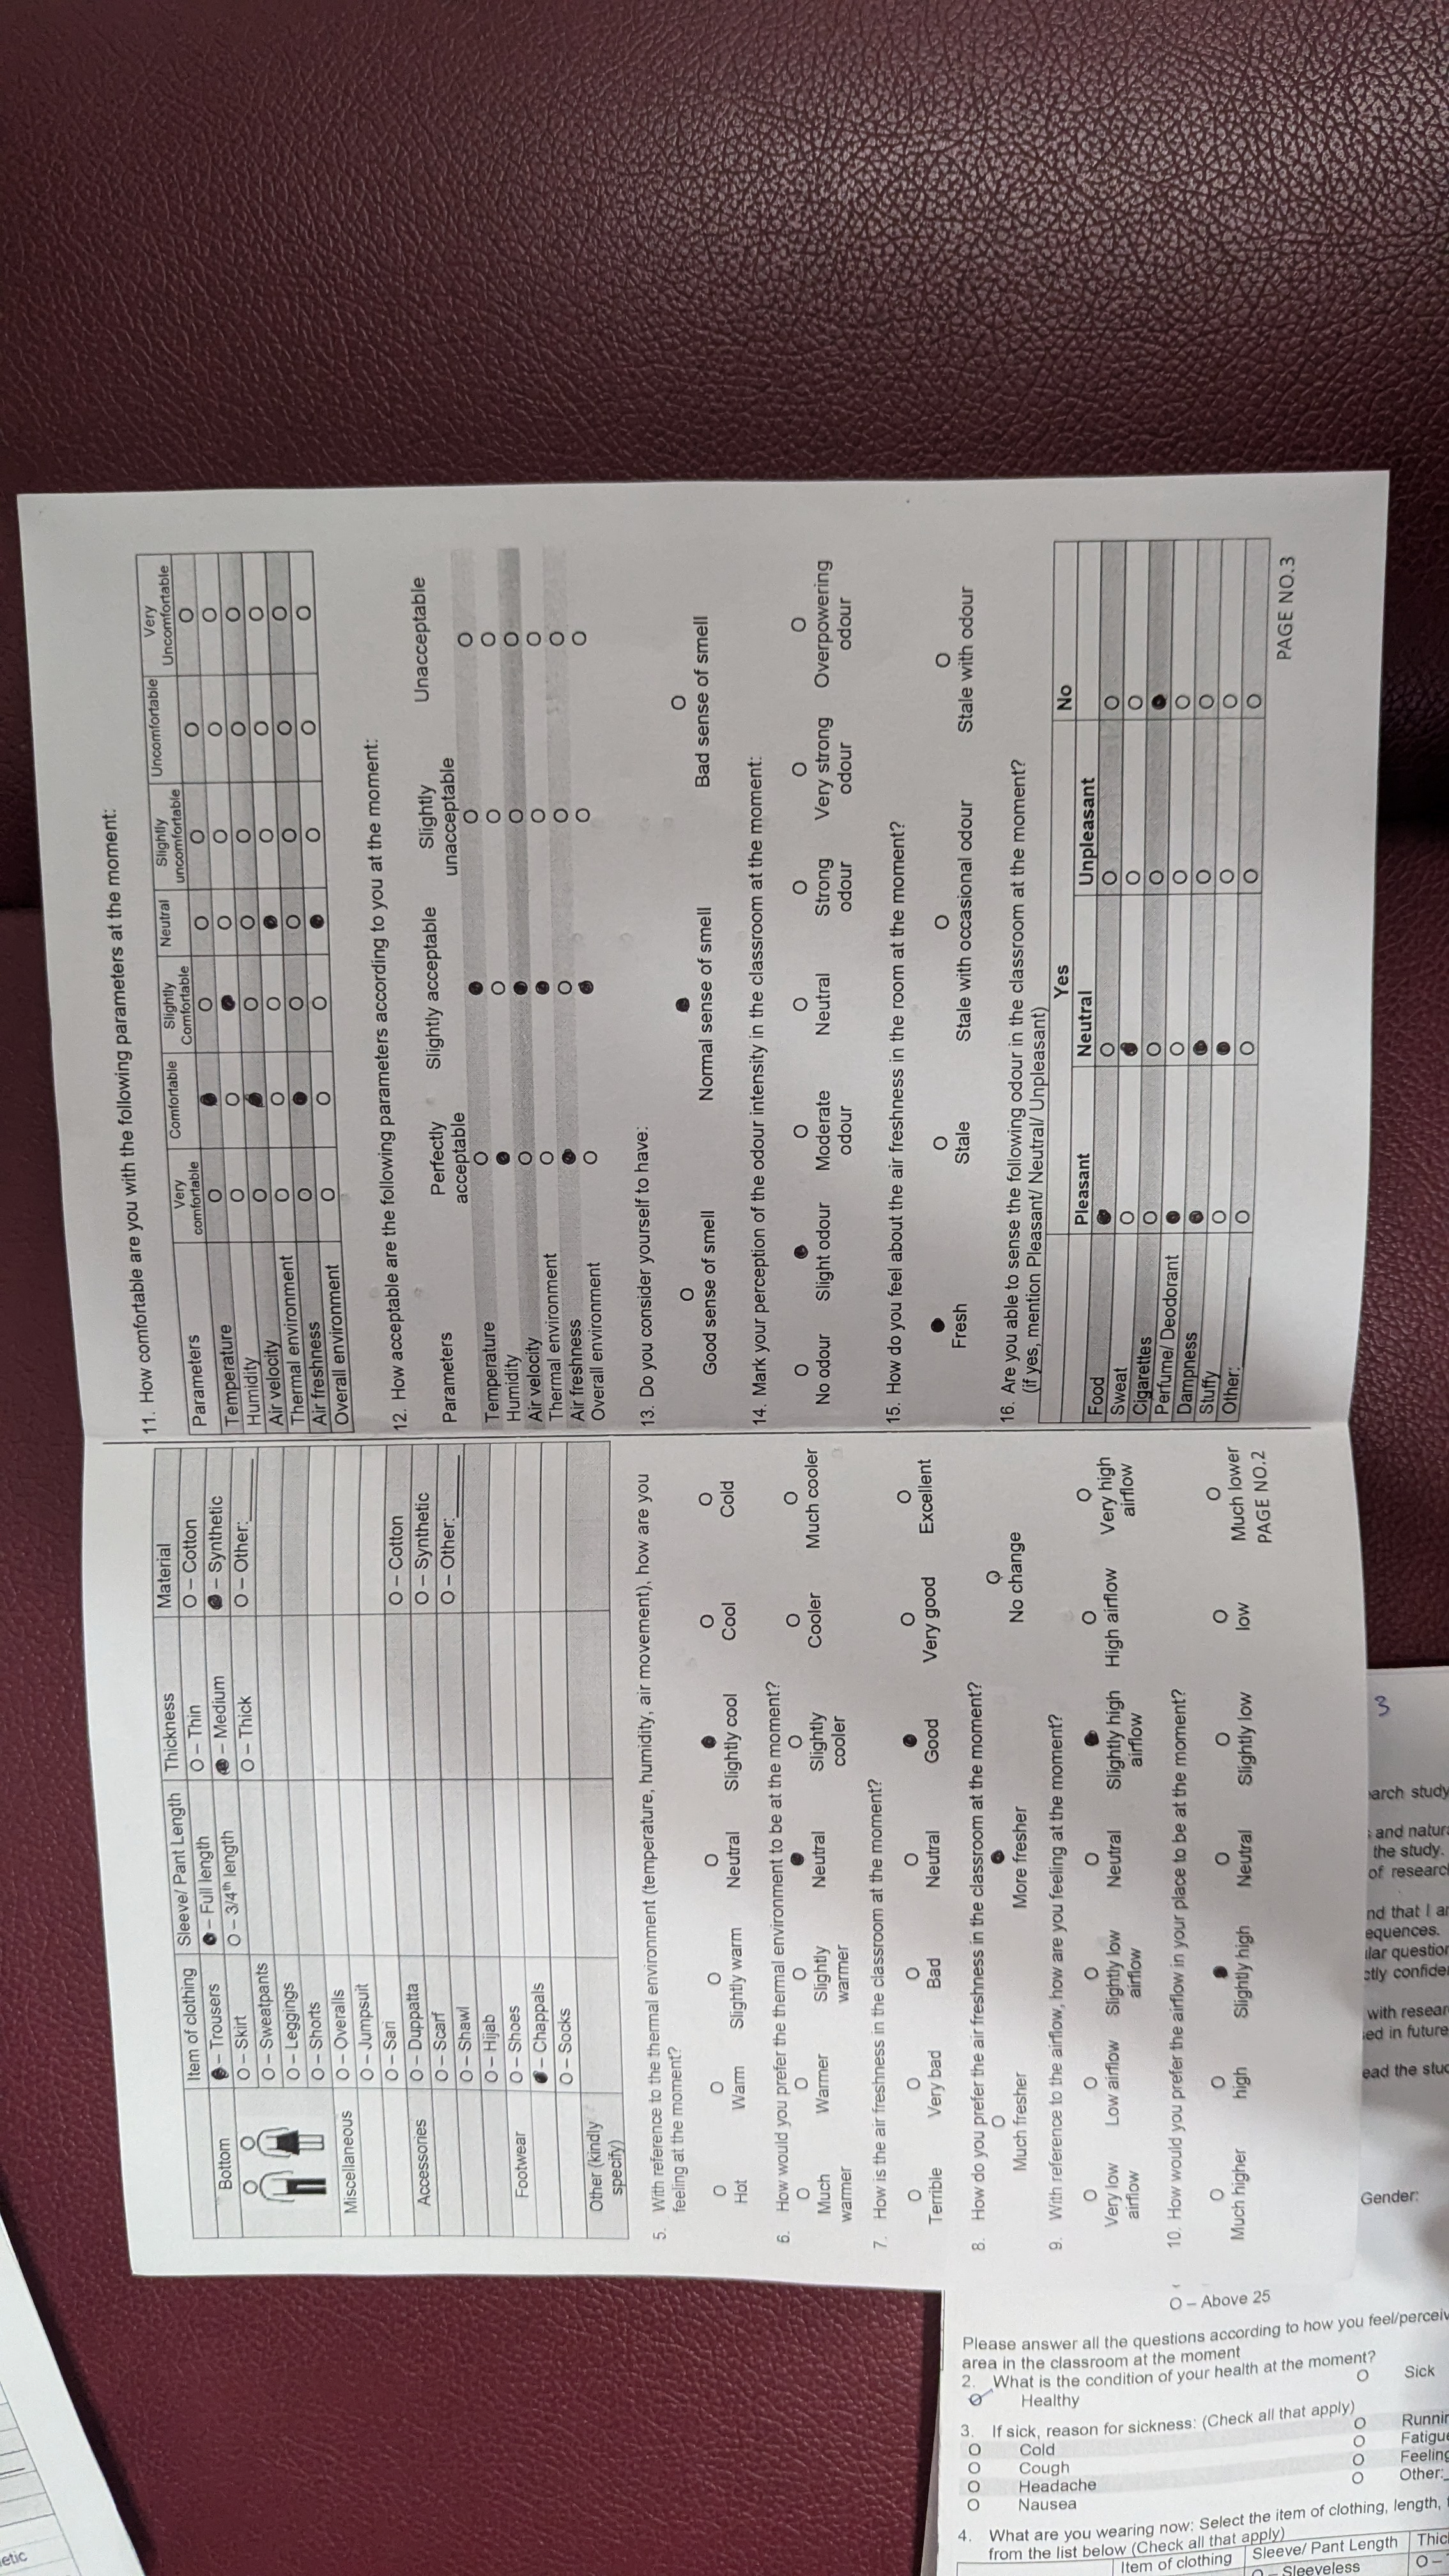 etic
Item of clothing Sleeve/ Pant Length Thickness Material
Bottom ●– Trousers ●– Full length O – Thin O – Cotton
O – Skirt O – 3/4th length ●– Medium ●– Synthetic
O – Sweatpants O – Thick O – Other:______
O – Leggings
O – Shorts
Miscellaneous O – Overalls
O – Jumpsuit
O – Sari
Accessories O – Duppatta O – Cotton
O – Scarf O – Synthetic
O – Shawl O – Other:______
O – Hijab
Footwear O – Shoes
●– Chappals
O – Socks
Other (kindly
specify)
5. With reference to the thermal environment (temperature, humidity, air movement), how are you
feeling at the moment?
O O O O ● O O
Hot Warm Slightly warm Neutral Slightly cool Cool Cold
6. How would you prefer the thermal environment to be at the moment?
O O O ● O O O
Much Warmer Slightly Neutral Slightly Cooler Much cooler
warmer warmer cooler
7. How is the air freshness in the classroom at the moment?
O O O O ● O O
Terrible Very bad Bad Neutral Good Very good Excellent
8. How do you prefer the air freshness in the classroom at the moment?
O ● O
Much fresher More fresher No change
9. With reference to the airflow, how are you feeling at the moment?
O O O O ● O O
Very low Low airflow Slightly low Neutral Slightly high High airflow Very high
airflow airflow airflow airflow
10. How would you prefer the airflow in your place to be at the moment?
O O ● O O O O
Much higher high Slightly high Neutral Slightly low low Much lower
PAGE NO.2
11. How comfortable are you with the following parameters at the moment:
Parameters Very Comfortable Slightly Neutral Slightly Uncomfortable Very
comfortable Comfortable uncomfortable Uncomfortable
Temperature O ● O O O O O
Humidity O O ● O O O O
Air velocity O ● O O O O O
Thermal environment O O O ● O O O
Air freshness O ● O O O O O
Overall environment O O O ● O O O
12. How acceptable are the following parameters according to you at the moment:
Parameters Perfectly Slightly acceptable Slightly Unacceptable
acceptable unacceptable
Temperature O ● O O
Humidity ● O O O
Air velocity O ● O O
Thermal environment O ● O O
Air freshness ● O O O
Overall environment O ● O O
13. Do you consider yourself to have:
O ● O
Good sense of smell Normal sense of smell Bad sense of smell
14. Mark your perception of the odour intensity in the classroom at the moment:
O ● O O O O O
No odour Slight odour Moderate Neutral Strong Very strong Overpowering
odour odour odour odour
15. How do you feel about the air freshness in the room at the moment?
● O O O
Fresh Stale Stale with occasional odour Stale with odour
16. Are you able to sense the following odour in the classroom at the moment?
(if yes, mention Pleasant/ Neutral/ Unpleasant)
Yes No
Pleasant Neutral Unpleasant
Food ● O O O
Sweat O ● O O
Cigarettes O O O ●
Perfume/ Deodorant ● O O O
Dampness ● ● O O
Stuffy O ● O O
Other:__________ O O O O
PAGE NO.3
O – Above 25
Please answer all the questions according to how you feel/perceiv
area in the classroom at the moment
2. What is the condition of your health at the moment?
Healthy O Sick
3. If sick, reason for sickness: (Check all that apply)
O Cold O Runnin
O Cough O Fatigu
O Headache O Feeling
O Nausea O Other:
4. What are you wearing now: Select the item of clothing, length,
from the list below (Check all that apply)
Item of clothing Sleeve/ Pant Length Thic
O – Sleeveless O –
3
arch study
and natur
the study.
of researc
nd that I a
equences.
lar question
ctly confide
with resear
ed in future
ead the stu
Gender: